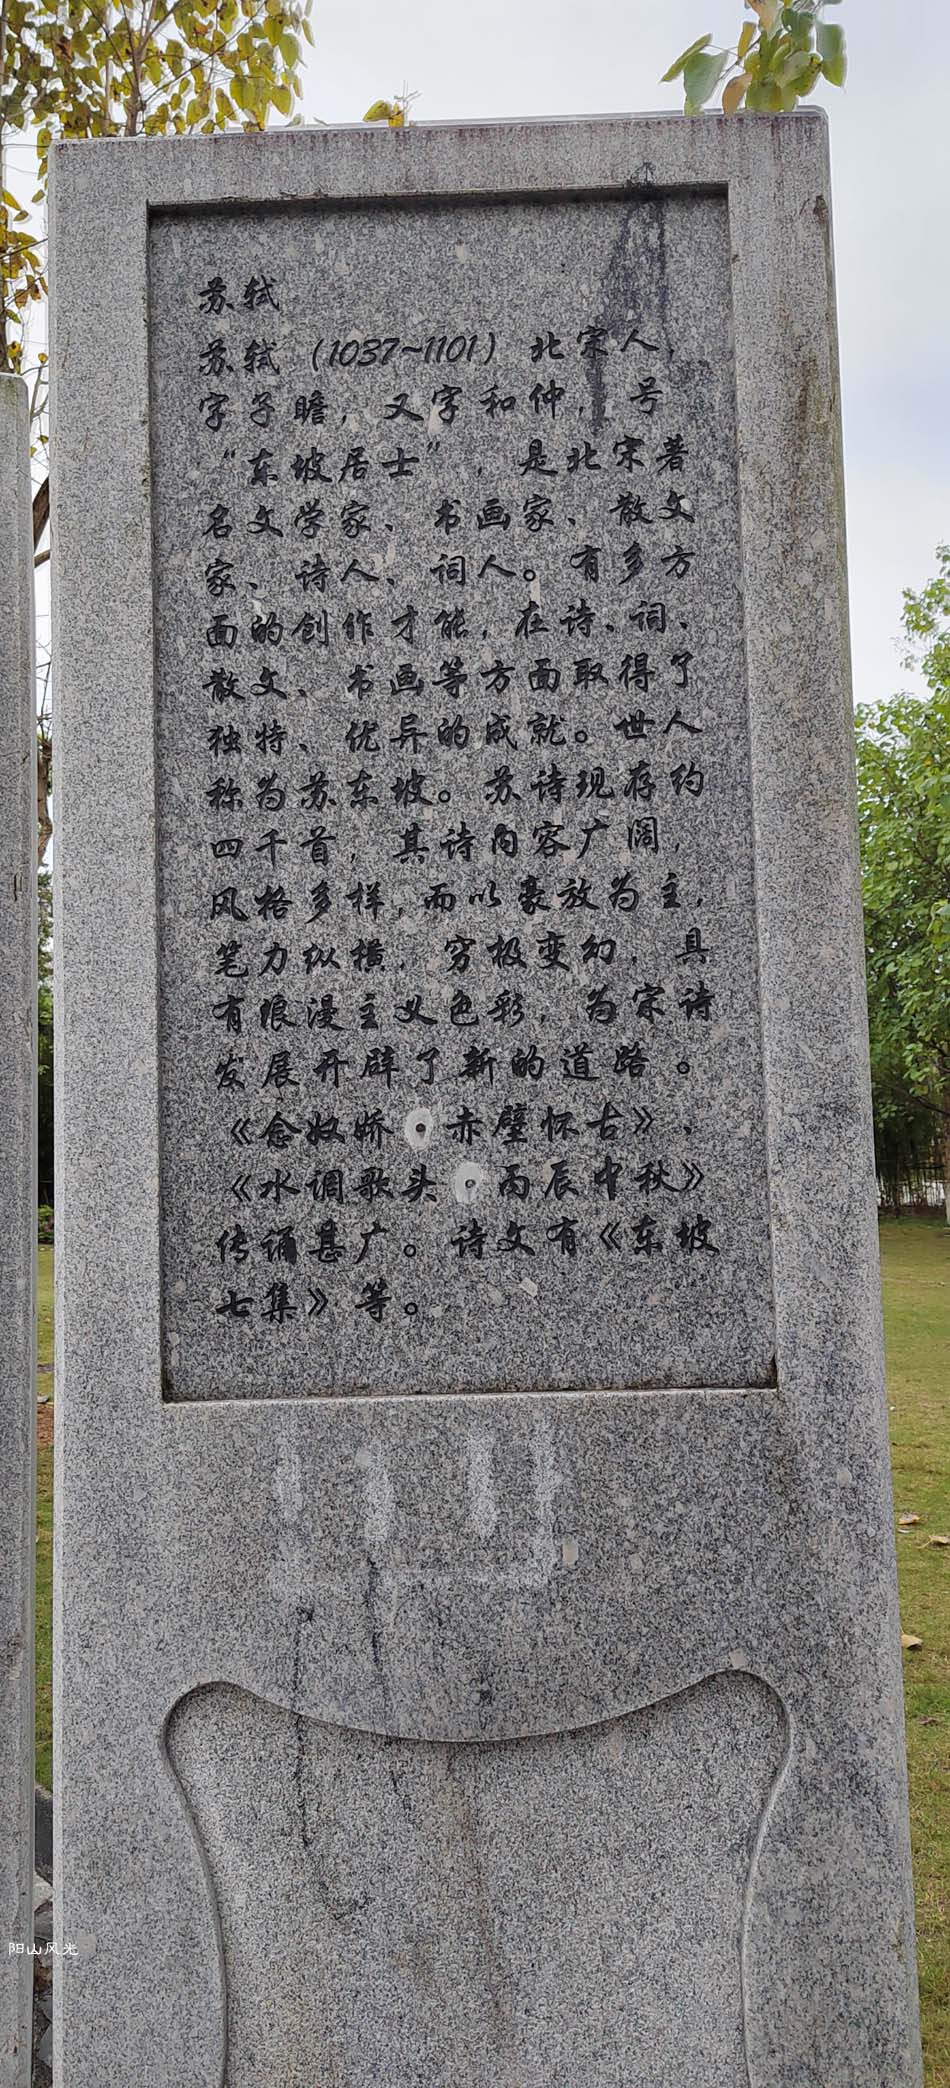 苏轼
苏轼（1037~1101）北宋人，
字子瞻，又字和仲，号
“东坡居士”，是北宋著
名文学家、书画家、散文
家、诗人、词人。有多方
面的创作才能，在诗、词、
散文、书画等方面取得了
独特、优异的成就。世人
称为苏东坡。苏诗现存约
四千首，其诗内容广阔，
风格多样，而以豪放为主，
笔力纵横，穷极变幻，具
有浪漫主义色彩，为宋诗
发展开辟了新的道路。
《念奴娇·赤壁怀古》、
《水调歌头·丙辰中秋》
传诵甚广。诗文有《东坡
七集》等。
阳山风光